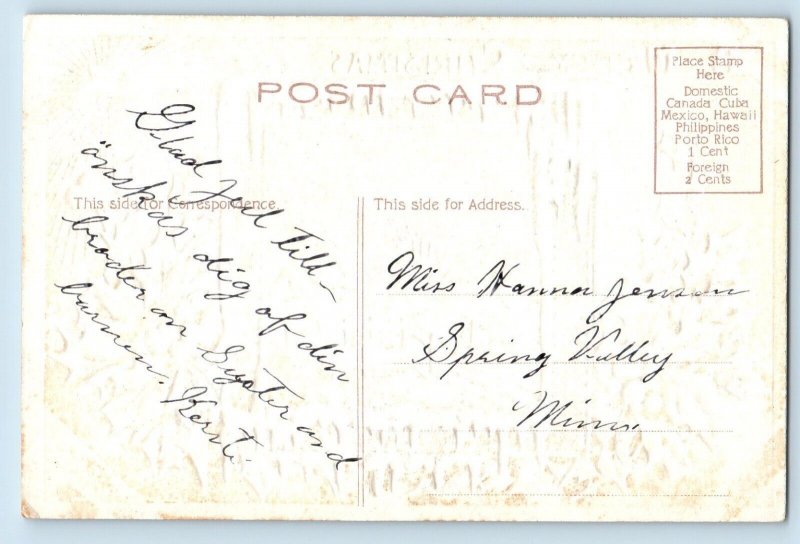 POST CARD
Place Stamp
Here
Domestic
Canada Cuba
Mexico, Hawaii
Philippines
Porto Rico
1 Cent
Foreign
2 Cents
This side for Correspondence.
This side for Address.
Glad Jul till-
önskas dig af din
broder on Syster and
barnen. Kersti
Miss Hanna Jenson
Spring Valley
Minn.